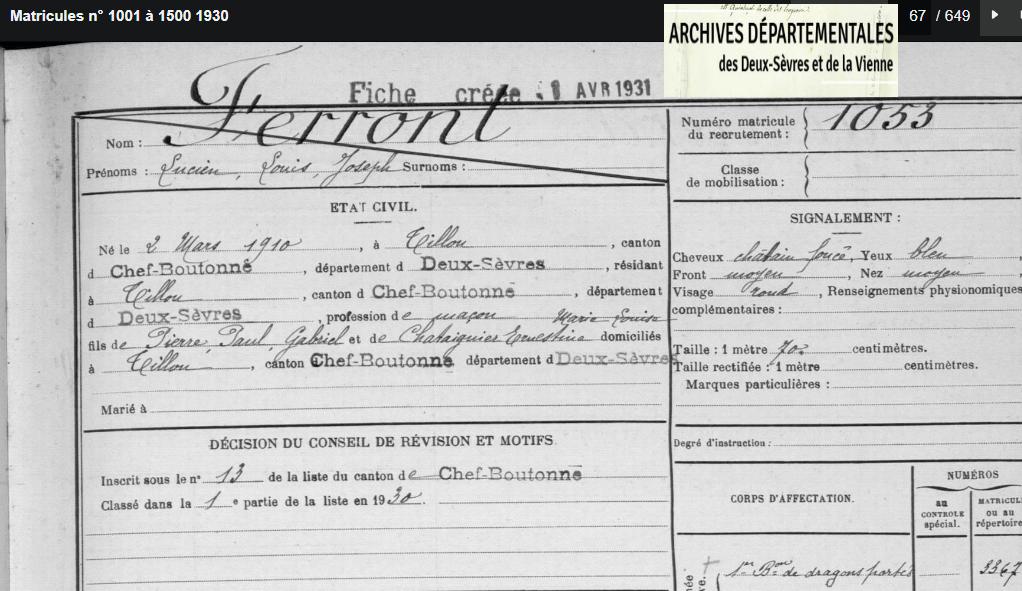 Matricules n° 1001 à 1500 1930
67 / 649
ARCHIVES DÉPARTEMENTALES
des Deux-Sèvres et de la Vienne
Fiche créée 8 AVR 1931
Nom : Ferront
Prénoms : Lucien, Louis, Joseph Surnoms :
ETAT CIVIL.
Né le 2 Mars 1910, à Tillou, canton
d Chef-Boutonne, département d Deux-Sèvres, résidant
à Tillou, canton d Chef-Boutonne, département
d Deux-Sèvres, profession de maçon
Marie Louise
fils de Pierre, Paul, Gabriel et de Chataignier Ernestine domiciliés
à Tillou, canton Chef-Boutonne département d Deux-Sèvres
Marié à
DÉCISION DU CONSEIL DE RÉVISION ET MOTIFS.
Inscrit sous le n° 13 de la liste du canton de Chef-Boutonne
Classé dans la 1 e partie de la liste en 1930.
Numéro matricule
du recrutement : 1053
Classe
de mobilisation :
SIGNALEMENT :
Cheveux châtain foncé, Yeux bleu,
Front moyen, Nez moyen
Visage rond, Renseignements physionomiques
complémentaires :
Taille : 1 mètre 70 centimètres.
Taille rectifiée : 1 mètre centimètres.
Marques particulières :
Degré d'instruction :
CORPS D'AFFECTATION.
NUMÉROS
au
CONTROLE
spécial.
MATRICUL
ou au
répertoire
1er Bon de dragons portés
3367